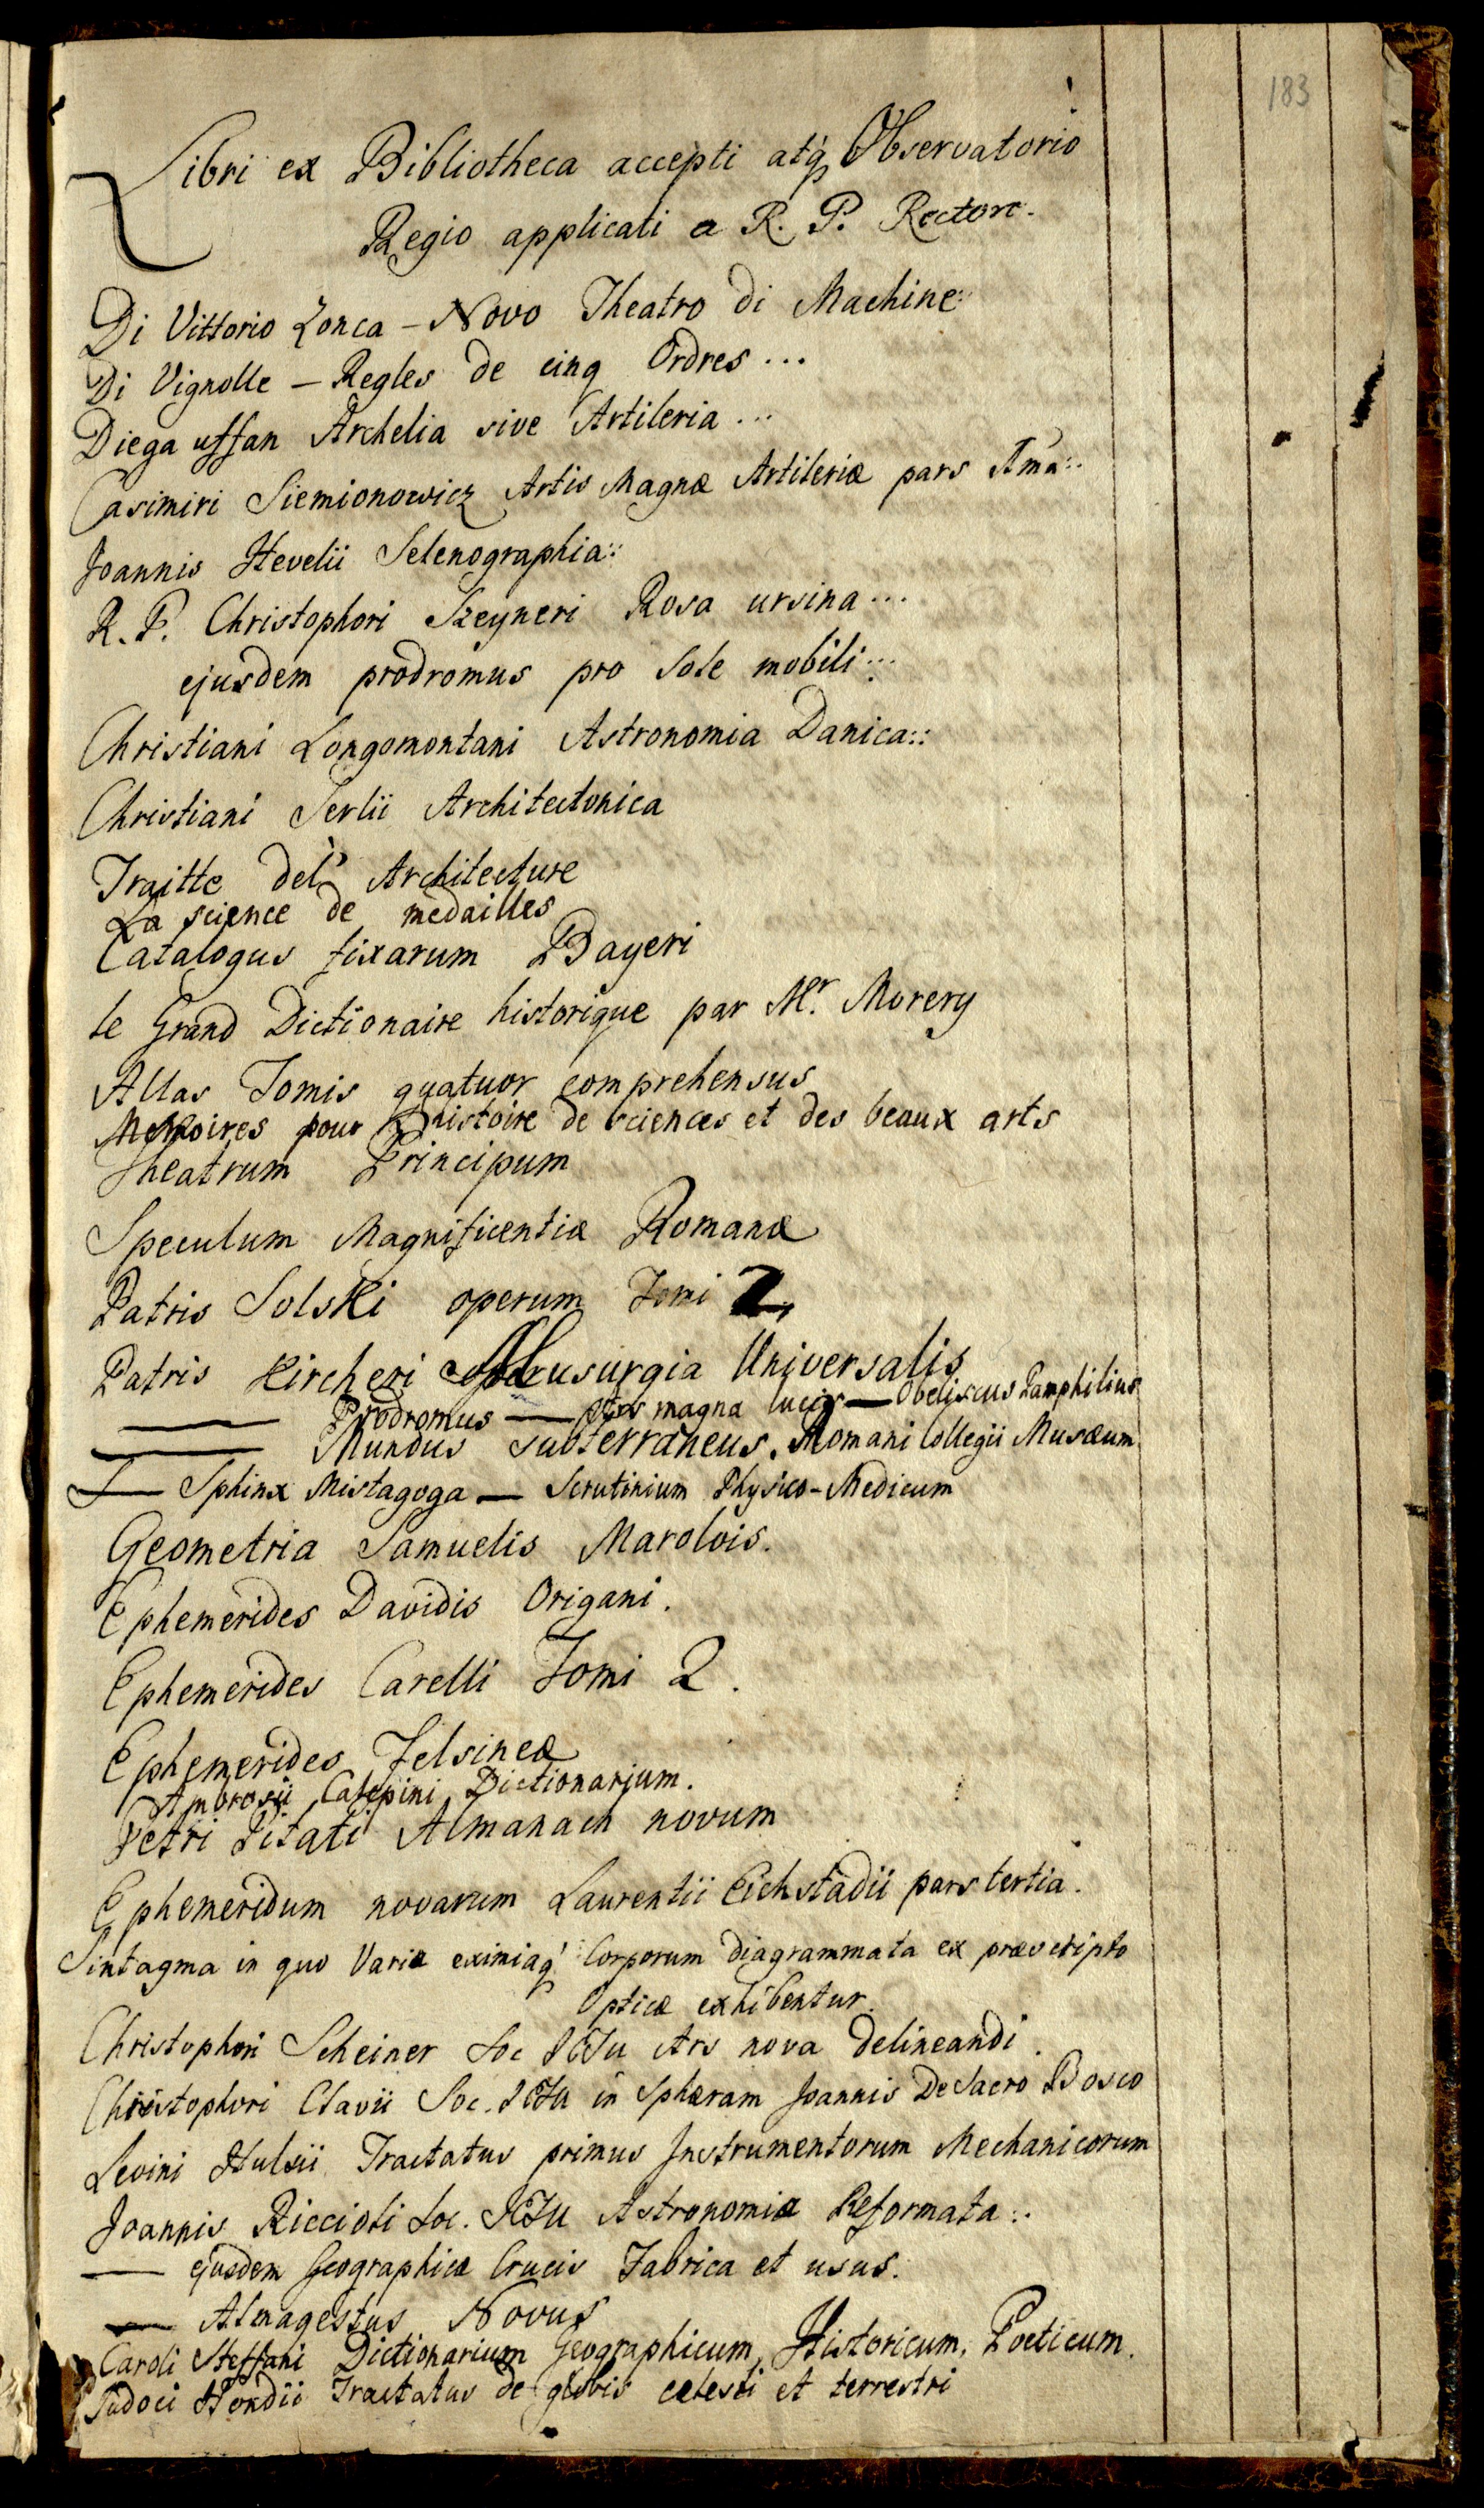 183
Libri ex Bibliotheca accepti atq Observatorio
Regio applicati a R. P. Rectore.
Di Vittorio Zonca - Novo Theatro di Machine:
Di Vignolle - Regles de cinq Ordres ...
Diega uffan Archelia sive Artileria ...
Casimiri Siemionowicz Artis Magnæ Artileriæ pars Ima:.
Joannis Hevelii Selenographia::
R. P. Christophori Szeyneri Rosa ursina ...
ejusdem prodromus pro Sole mobili ...
Christiani Longomontani Astronomia Danica::
Christiani Serlii Architectonica
Traitte del' Architecture
La science de medailles
Catalogus fixarum Bayeri
le Grand Dictionaire historique par Mr. Morery
Atlas Tomis quatuor comprehensus
Memoires pour histoire de sciences et des beaux arts
Theatrum Principum
Speculum Magnificentiæ Romanæ
Patris Solski operum Tomi 2
Patris Kircheri Musurgia Universalis
— Prodromus — Ars magna lucis — Obeliscus Pamphilius
— Mundus subterraneus. Romani Collegii Musæum
— Sphinx Mistagoga — Scrutinium Physico-Medicum
Geometria Samuelis Marolois.
Ephemerides Davidis Origani.
Ephemerides Carelli Tomi 2.
Ephemerides Felsineæ
Ambrosii Calepini Dictionarium.
Petri Pitati Almanach novum
Ephemeridum novarum Laurentii Eichstadii pars tertia.
Sintagma in quo Varia eximiaq' Corporum diagrammata ex præscripto
Opticæ exhibentur.
Christophori Scheiner Soc JESu Ars nova delineandi.
Christophori Clavii Soc. JESu in Sphæram Joannis De Sacro Bosco
Levini Hulsii Tractatus primus Instrumentorum Mechanicorum
Joannis Riccioli Soc. JESu Astronomia Reformata:.
— ejusdem Geographicæ Crucis Fabrica et usus.
— Almagestus Novus
Caroli Steffani Dictionarium Geographicum, Historicum, Poeticum.
Judoci Hondii Tractatus de globis celesti et terrestri